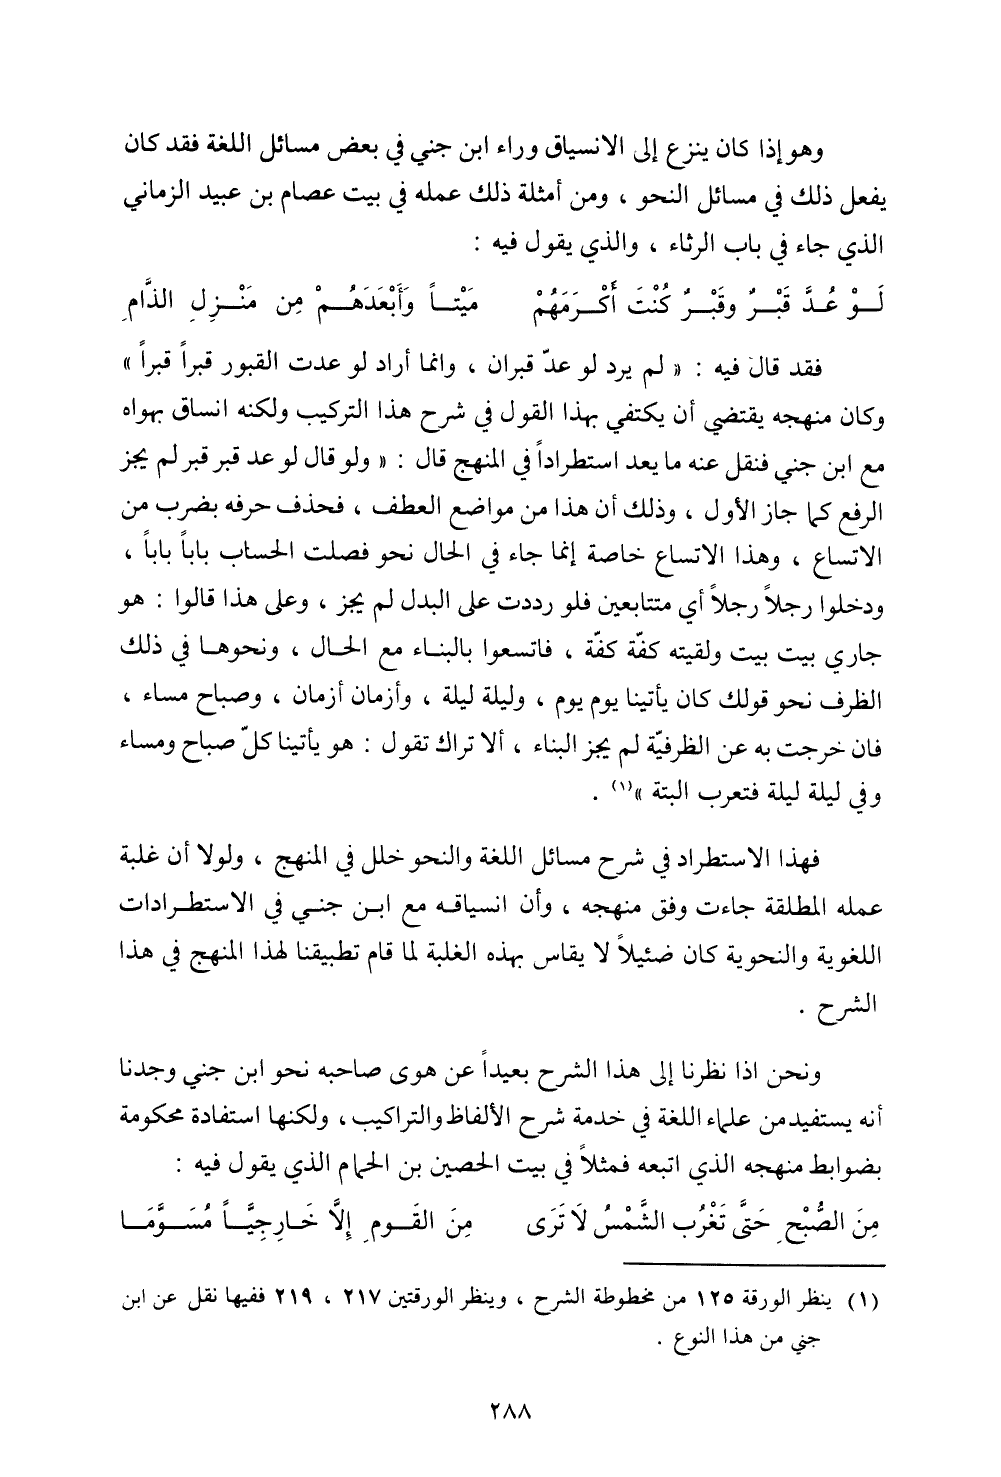 وهو إذا كان ينزع إلى الانسياق وراء ابن جني في بعض مسائل اللغة فقد كان
يفعل ذلك في مسائل النحو ، ومن أمثلة ذلك عمله في بيت عصام بن عبيد الزماني
الذي جاء في باب الرثاء ، والذي يقول فيه :
لَـوْ عُـدَّ قَبْـرٌ وقَبْـرٌ كُنْتَ أَكْـرَمَهُمْ    مَيْتـاً وَأَبْعَدَهُـمْ مِن مَنْـزِلِ الذَّامِ
فقد قال فيه : « لم يرد لو عدّ قبران ، وانما أراد لو عدت القبور قبراً قبراً »
وكان منهجه يقتضي أن يكتفي بهذا القول في شرح هذا التركيب ولكنه انساق بهواه
مع ابن جني فنقل عنه ما يعد استطراداً في المنهج قال : « ولو قال لو عد قبر قبر لم يجز
الرفع كما جاز الأول ، وذلك أن هذا من مواضع العطف ، فحذف حرفه بضرب من
الاتساع ، وهذا الاتساع خاصة إنما جاء في الحال نحو فصلت الحساب باباً باباً ،
ودخلوا رجلاً رجلاً أي متتابعين فلو رددت على البدل لم يجز ، وعلى هذا قالوا : هو
جاري بيت بيت ولقيته كفّة كفّة ، فاتسعوا بالبناء مع الحال ، ونحوها في ذلك
الظرف نحو قولك كان يأتينا يوم يوم ، وليلة ليلة ، وأزمان أزمان ، وصباح مساء ،
فان خرجت به عن الظرفيّة لم يجز البناء ، ألا تراك تقول : هو يأتينا كلّ صباح ومساء
وفي ليلة ليلة فتعرب البتة »(١) .
فهذا الاستطراد في شرح مسائل اللغة والنحو خلل في المنهج ، ولولا أن غلبة
عمله المطلقة جاءت وفق منهجه ، وأن انسياقه مع ابن جني في الاستطرادات
اللغوية والنحوية كان ضئيلاً لا يقاس بهذه الغلبة لما قام تطبيقنا لهذا المنهج في هذا
الشرح .
ونحن اذا نظرنا إلى هذا الشرح بعيداً عن هوى صاحبه نحو ابن جني وجدنا
أنه يستفيد من علماء اللغة في خدمة شرح الألفاظ والتراكيب ، ولكنها استفادة محكومة
بضوابط منهجه الذي اتبعه فمثلاً في بيت الحصين بن الحمام الذي يقول فيه :
مِنَ الصُّبْحِ حَتَّى تَغْرُب الشَّمْسُ لاَ تَرَى    مِنَ القَـومِ إِلَّا خَـارِجِيَّـاً مُسَـوَّمَـا
(١) ينظر الورقة ١٢٥ من مخطوطة الشرح ، وينظر الورقتين ٢١٧ ، ٢١٩ ففيها نقل عن ابن
جني من هذا النوع .
٢٨٨